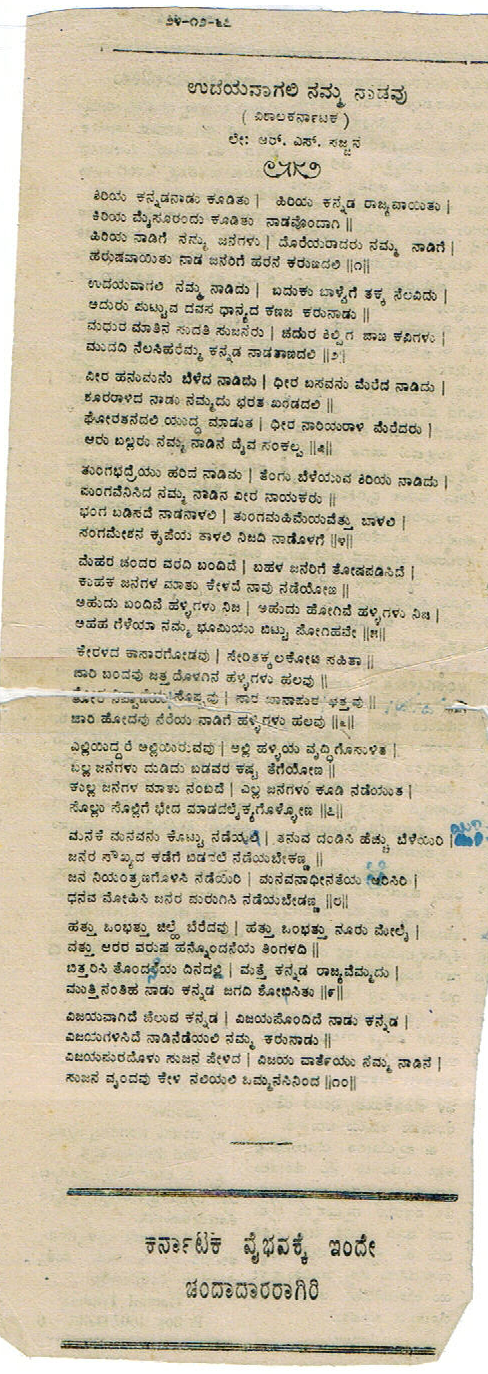 ೨೪-೧೨-೬೭
ಉದಯವಾಗಲಿ ನಮ್ಮ ನಾಡವು
( ವಿಶಾಲಕರ್ನಾಟಕ )
ಲೇ: ಆರ್. ಎಸ್. ಸಜ್ಜನ
ಕಿರಿಯ ಕನ್ನಡನಾಡು ಕೂಡಿತು | ಹಿರಿಯ ಕನ್ನಡ ರಾಜ್ಯವಾಯಿತು |
ಕಿರಿಯ ಮೈಸೂರಂದು ಕೂಡಿತು ನಾಡವೊಂದಾಗಿ ||
ಹಿರಿಯ ನಾಡಿಗೆ ನಮ್ಮ ಜನಗಳು | ದೊರೆಯರಾದರು ನಮ್ಮ ನಾಡಿಗೆ |
ಹರುಷವಾಯಿತು ನಾಡ ಜನರಿಗೆ ಹರನ ಕರುಣದಲಿ ||೧||
ಉದಯವಾಗಲಿ ನಮ್ಮ ನಾಡಿದು | ಬದುಕು ಬಾಳ್ವೆಗೆ ತಕ್ಕ ನೆಲವಿದು |
ಅದುರು ಪುಟ್ಟುವ ದವಸ ಧಾನ್ಯದ ಕಣಜ ಕರುನಾಡು ||
ಮಧುರ ಮಾತಿನ ಸುದತಿ ಸುಜನರು | ಚದುರ ಶಿಲ್ಪಿಗ ಜಾಣ ಕವಿಗಳು |
ಮುದದಿ ನೆಲಸಿಹರೆಮ್ಮ ಕನ್ನಡ ನಾಡತಾಣದಲಿ ||೨||
ವೀರ ಹನುಮನು ಬೆಳೆದ ನಾಡಿದು | ಧೀರ ಬಸವನು ಮೆರೆದ ನಾಡಿದು |
ಶೂರರಾಳಿದ ನಾಡು ನಮ್ಮದು ಭರತ ಖಂಡದಲಿ ||
ಘೋರತನದಲಿ ಯುದ್ಧ ಮಾಡುತ | ಧೀರ ನಾರಿಯರಾಳಿ ಮೆರೆದರು |
ಆರು ಬಲ್ಲರು ನಮ್ಮ ನಾಡಿನ ದೈವ ಸಂಕಲ್ಪ ||೩||
ತುಂಗಭದ್ರೆಯು ಹರಿವ ನಾಡಿದು | ತೆಂಗು ಬೆಳೆಯುವ ಸಿರಿಯ ನಾಡಿದು |
ಪುಂಗವೆನಿಸಿದ ನಮ್ಮ ನಾಡಿನ ವೀರ ನಾಯಕರು ||
ಭಂಗ ಬಡಿಸದೆ ನಾಡನಾಳಲಿ | ತುಂಗಮಹಿಮೆಯವೆತ್ತು ಬಾಳಲಿ |
ಸಂಗಮೇಶನ ಕೃಪೆಯ ತಾಳಲಿ ನಿಜದಿ ನಾಡೊಳಗೆ ||೪||
ಮೆಹರ ಚಂದರ ವರದಿ ಬಂದಿದೆ | ಬಹಳ ಜನರಿಗೆ ತೋಷಪಡಿಸಿದೆ |
ಕುಹಕ ಜನಗಳ ಮಾತು ಕೇಳದೆ ನಾವು ನಡೆಯೋಣ ||
ಅಹುದು ಬಂದಿವೆ ಹಳ್ಳಿಗಳು ನಿಜ | ಅಹುದು ಹೋಗಿವೆ ಹಳ್ಳಿಗಳು ನಿಜ |
ಅಹಹ ಗೆಳೆಯಾ ನಮ್ಮ ಭೂಮಿಯು ಬಿಟ್ಟು ಪೋಗಿಹವೇ ||೫||
ಕೇರಳದ ಕಾಸಾರಗೋಡವು | ಸೇರಿತಕ್ಕಲಕೋಟಿ ಸಹಿತಾ ||
ಜಾರಿ ಬಂದವು ಜತ್ತದೊಳಗಿನ ಹಳ್ಳಿಗಳು ಹಲವು ||
ಸೊಪ್ಪವು | ಸಾರ ಖಾನಾಪುರ
ಜಾರಿ ಹೋದವು ನೆರೆಯ ನಾಡಿಗೆ ಹಳ್ಳಿಗಳು ಹಲವು ||೬||
ಎಲ್ಲಿಯಿದ್ದರೆ ಅಲ್ಲಿಯಿರುವವು | ಅಲ್ಲಿ ಹಳ್ಳಿಯ ವೃದ್ಧಿಗೊಸುಳಿತ |
ಬಲ್ಲ ಜನಗಳು ದುಡಿದು ಬಡವರ ಕಷ್ಟ ತೆಗೆಯೋಣ ||
ಕುಲ್ಲ ಜನಗಳ ಮಾತು ನಂಬದೆ | ಎಲ್ಲ ಜನಗಳು ಕೂಡಿ ನಡೆಯುತ |
ಸೊಲ್ಲು ಸೊಲ್ಲಿಗೆ ಭೇದ ಮಾಡದಲೈಕ್ಯಗೊಳ್ಳೋಣ ||೭||
ಮನಕೆ ಮನವನು ಕೊಟ್ಟು ನಡೆಯಲಿ | ತನುವ ದಂಡಿಸಿ ಹೆಚ್ಚು ಬೆಳೆಯಿರಿ |
ಜನರ ಸೌಖ್ಯದ ಕಡೆಗೆ ಬಿಡದಲೆ ನಡೆಯಬೇಕಣ್ಣ ||
ಜನ ನಿಯಂತ್ರಣಗೊಳಿಸಿ ನಡೆಯಿರಿ | ಮನವನಾಧೀನತೆಯ ಆರಿಸಿರಿ |
ಧನವ ಮೋಹಿಸಿ ಜನರ ಮರುಗಿಸಿ ನಡೆಯಬೇಡಣ್ಣ ||೮||
ಹತ್ತು ಒಂಭತ್ತು ಜಿಲ್ಹೆ ಬೆರೆದವು | ಹತ್ತು ಒಂಭತ್ತು ನೂರು ಮೇಲೈ |
ವತ್ತು ಆರರ ವರುಷ ಹನ್ನೊಂದನೆಯ ತಿಂಗಳದಿ ||
ಬಿತ್ತರಿಸಿ ತೊಂದನೆಯ ದಿನದಲ್ಲಿ | ಮತ್ತೆ ಕನ್ನಡ ರಾಜ್ಯವೆಮ್ಮದು |
ಮುತ್ತಿನಂತಿಹ ನಾಡು ಕನ್ನಡ ಜಗದಿ ಶೋಭಿಸಿತು ||೯||
ವಿಜಯವಾಗಿದೆ ಚೆಲುವ ಕನ್ನಡ | ವಿಜಯಪೊಂದಿದೆ ನಾಡು ಕನ್ನಡ |
ವಿಜಯಗಳಿಸಿದೆ ನಾಡಿನೆಡೆಯಲಿ ನಮ್ಮ ಕರುನಾಡು ||
ವಿಜಯಪುರದೊಳು ಸುಜನ ಪೇಳಿದ | ವಿಜಯ ವಾರ್ತೆಯು ನಮ್ಮ ನಾಡಿನ |
ಸುಜನ ವೃಂದವು ಕೇಳಿ ನಲಿಯಲಿ ಒಮ್ಮನಸಿನಿಂದ ||೧೦||
ಕರ್ನಾಟಕ ವೈಭವಕ್ಕೆ ಇಂದೇ
ಚಂದಾದಾರರಾಗಿರಿ